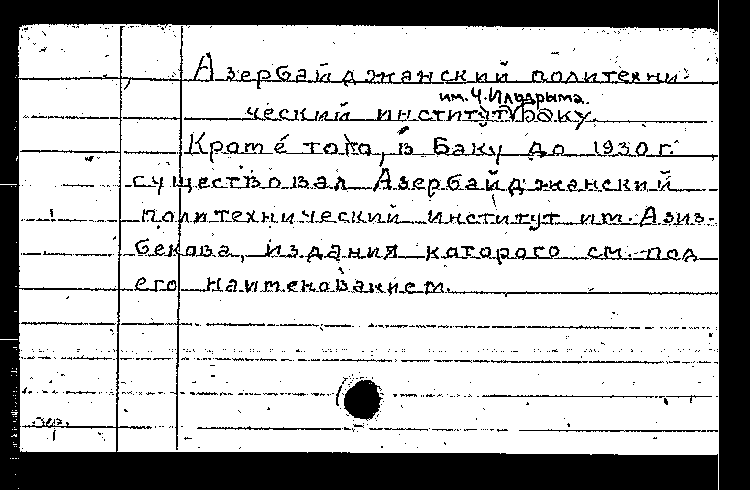 Азербайджанский политехни-
им. Ч. Илдрыма.
ческий институт, Баку.
Кроме того, в Баку до 1930 г.
существовал Азербайджанский
политехнический институт им. Азиз-
бекова, издания которого см. под
его наименованием.